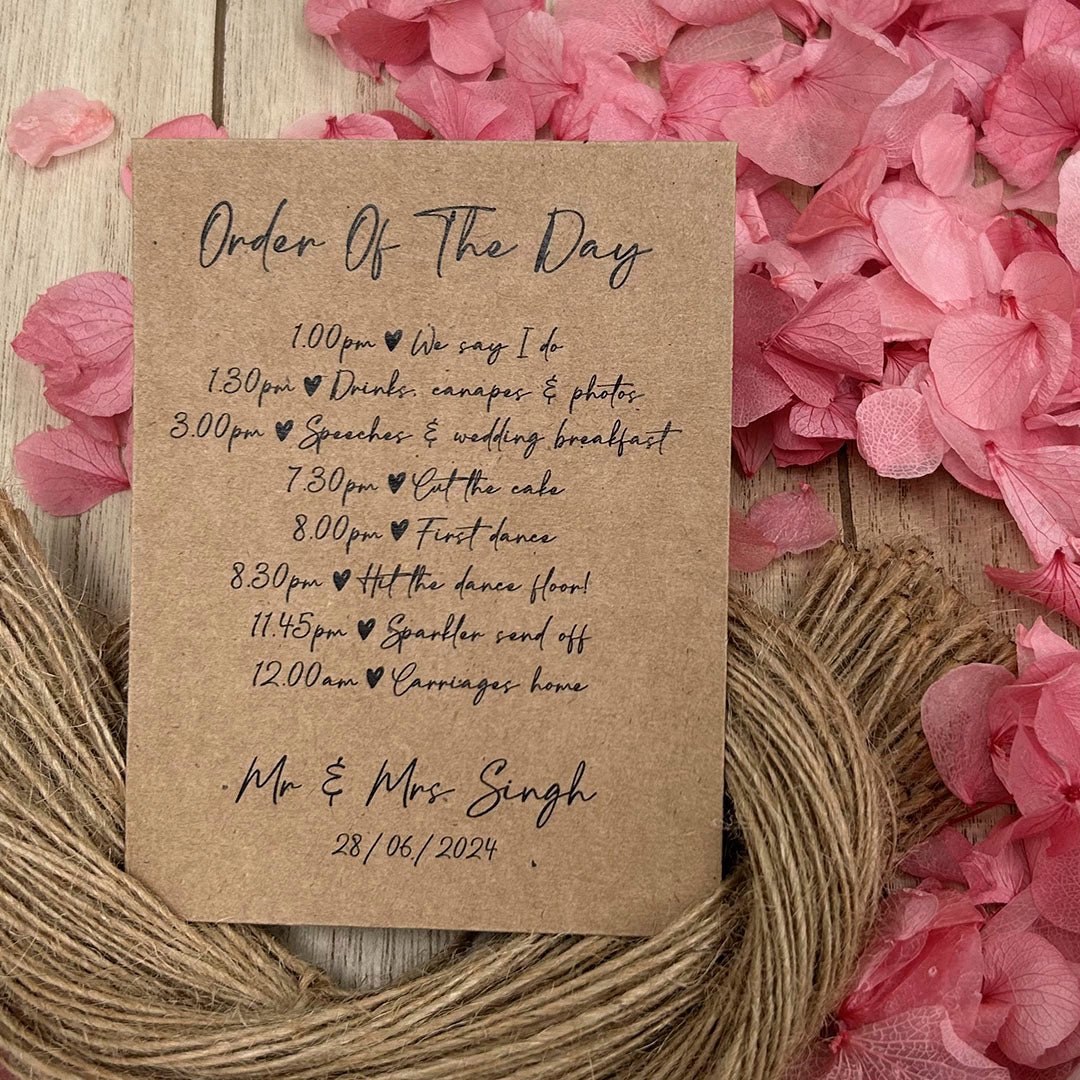 Order Of The Day
1.00pm ♥ We say I do
1.30pm ♥ Drinks, canapes & photos
3.00pm ♥ Speeches & wedding breakfast
7.30pm ♥ Cut the cake
8.00pm ♥ First dance
8.30pm ♥ Hit the dance floor!
11.45pm ♥ Sparkler send off
12.00am ♥ Carriages home
Mr & Mrs Singh
28/06/2024